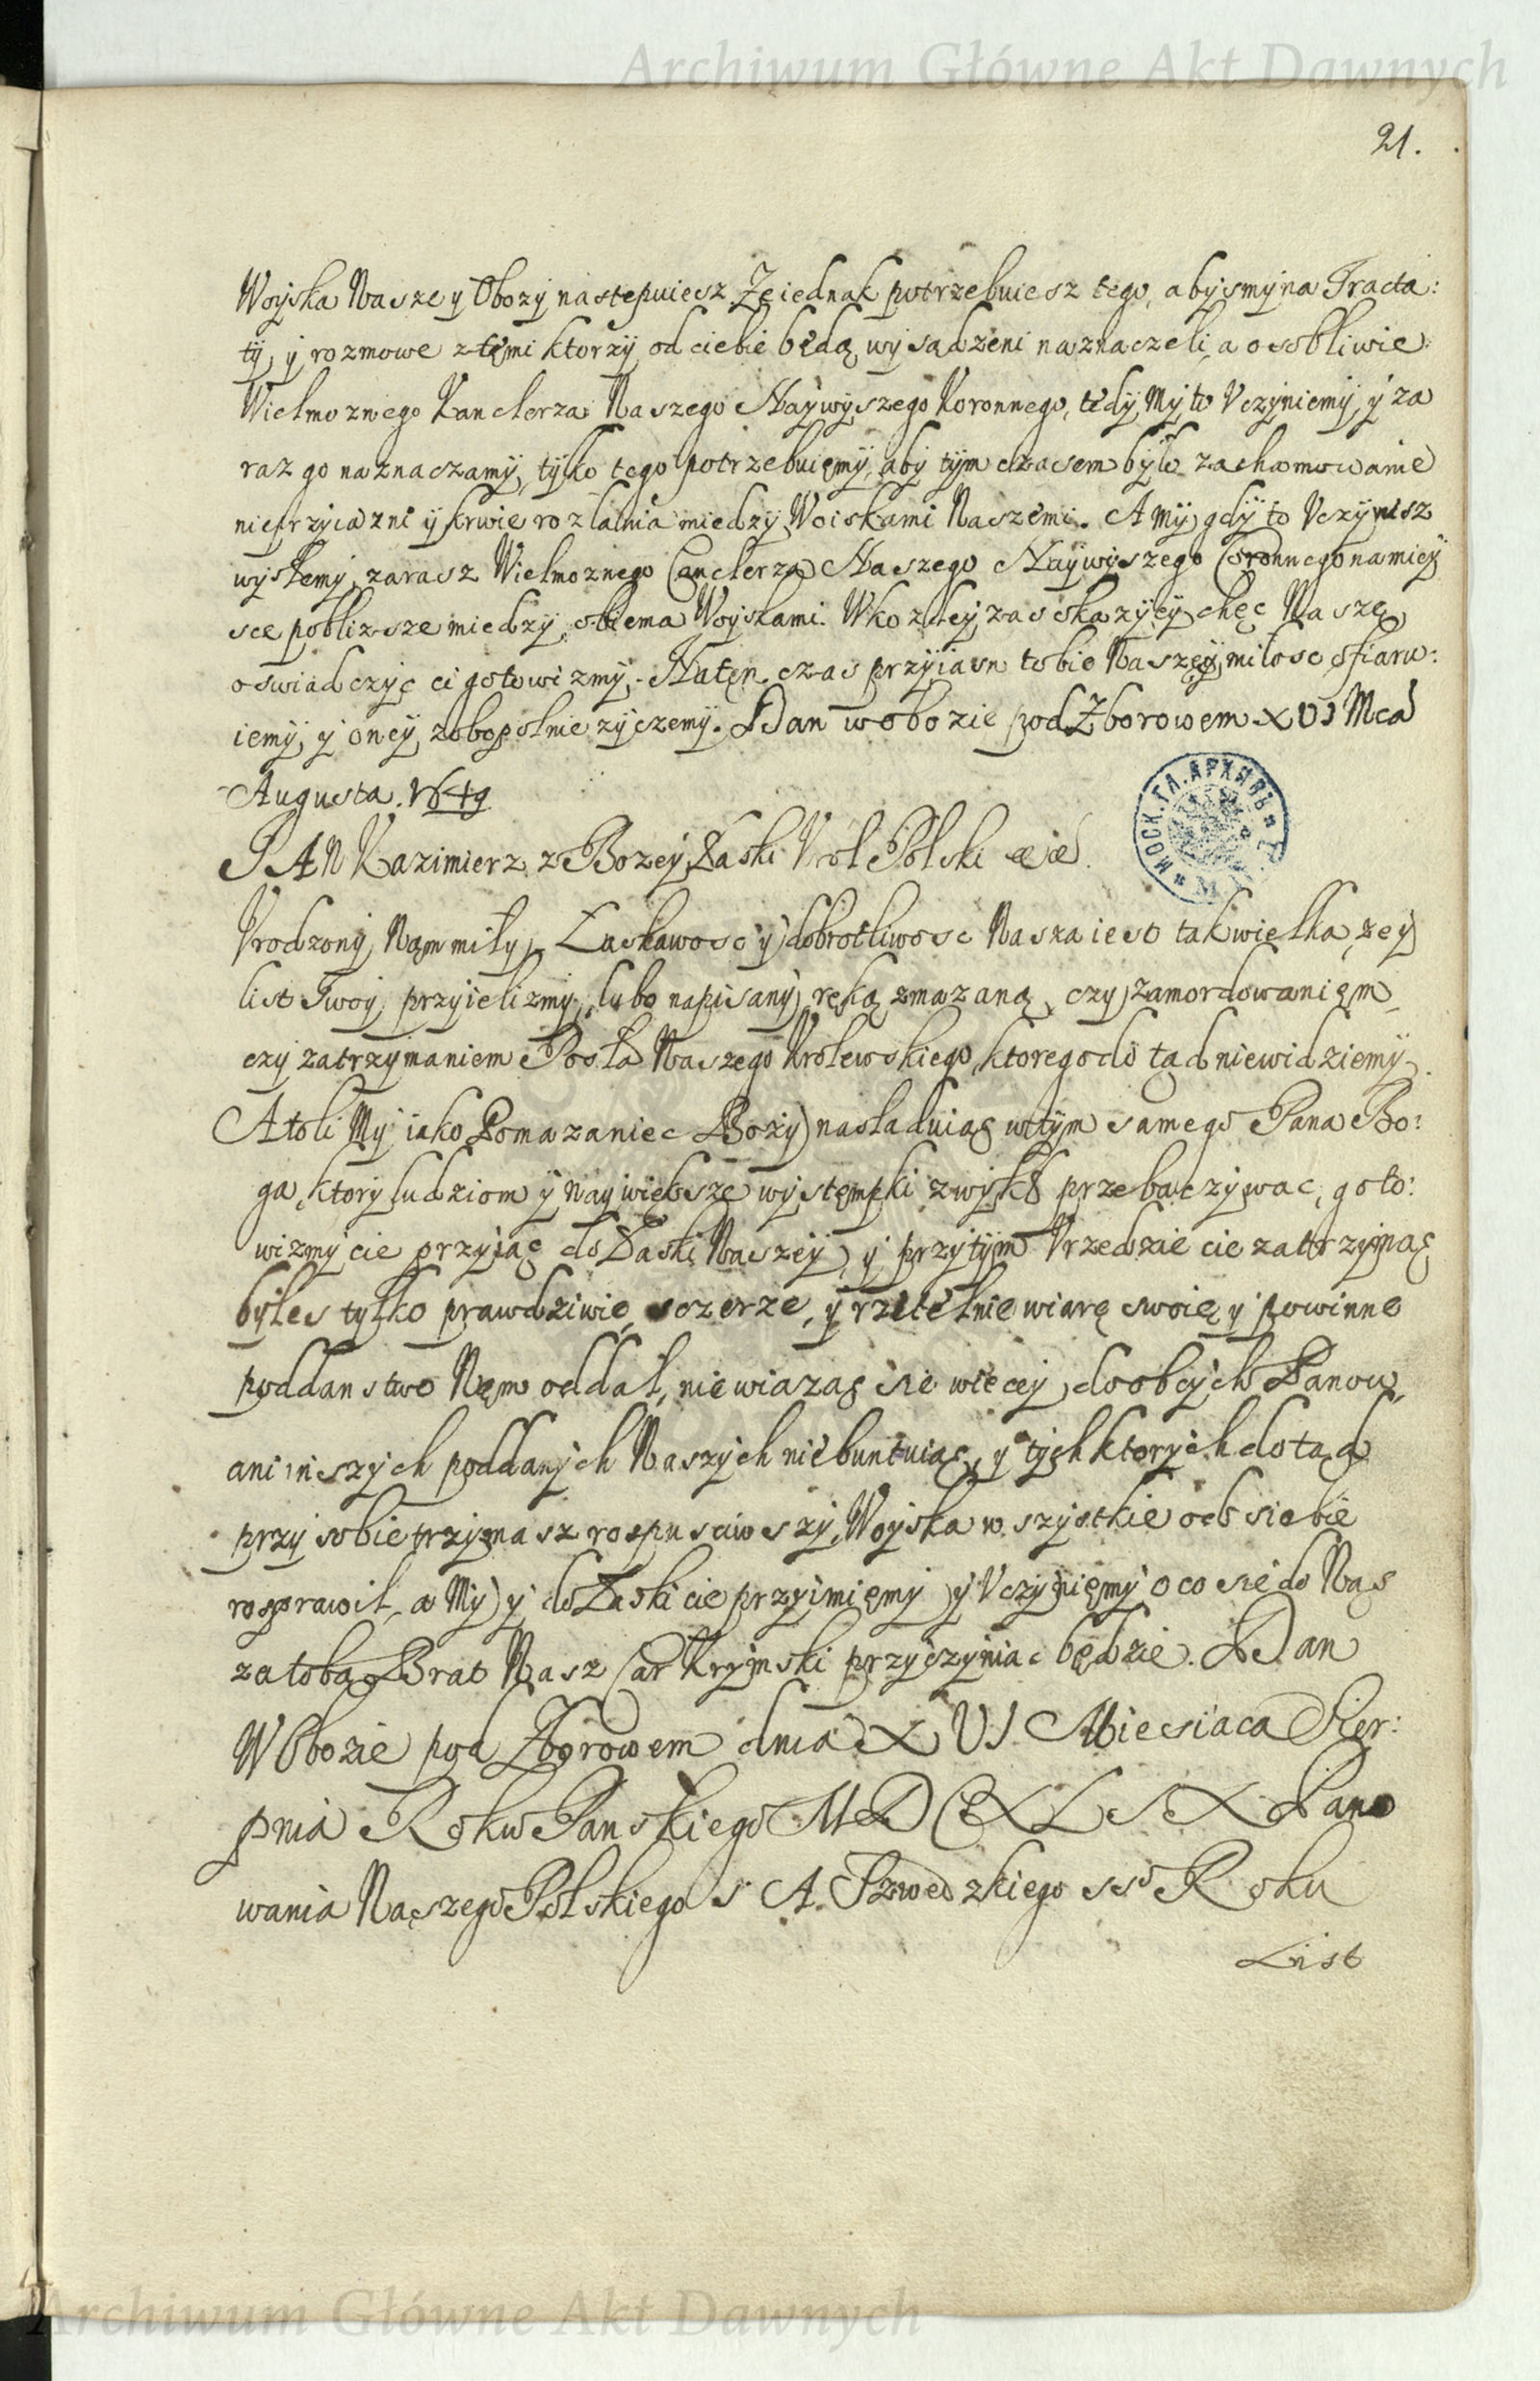 Archiwum Główne Akt Dawnych
21.
Woyska Nasze y Obozy nastepuiesz. Ze iednak potrzebuiesz tego, abysmy na Tracta:
ty, y rozmowe z temi ktorzy od ciebie będą wysadzeni naznaczeli, a osobliwie
Wielmoznego Kanclerza Naszego Naywyszego Koronnego, tedy My to Vczyniemy, y za
raz go naznaczamy, tylko tego potrzebuiemy, aby tym czasem było zachamowanie
nieprzyiazni y krwie rozlania miedzy Woiskami Naszemi. A my gdy to Vczynisz
wyslemy, zarasz Wielmoznego Canclerza Naszego Naywyszego Coronnego na miey
sce poblizsze miedzy, obiema Woyskami. W kozdey zas okazyey chęc Naszę
oswiadczyc ci gotowizmy. Na ten czas przyiazn tobie Naszęy, milosc ofiaru:
iemy, y oney zobopolnie zyczemy. Dan w obozie pod Zborowem XVI Mca
Augusta. 1649
JAN Kazimierz z Bozey Łaski Krol Polski &c
Vrodzony, Nam miły, Łaskawosc y dobrotliwosc Nasza iest tak wielka, ze y
list Twoy, przyielizmy, lubo napisany, ręką zmazaną, czy zamordowaniem
czy zatrzymaniem Posła Naszego Krolewskiego, ktorego do tąd niewidziemy.
Atoli My iako Pomazaniec Bozy nasladuiąc w tym samego Pana Bo:
ga, ktory ludziom y Naywiększe występki zwykł przebaczywac, goto:
wizmy cie przyiąc do Łaski Naszey, y przytym Vrzedzie cie zattrzymac
byłes tylko prawdziwie, sczerze, y rzetelnie wiarę swoię y powinne
poddanstwo Nam oddał, nie wiazac sie wiecey do obcych Panow,
ani inszych poddanych Naszych nie buntuiąc, y tych ktorych do tąd
przy sobie trzymasz rospusciwszy, Woyska wszystkie od siebie
rosprawił, a My y do Łaski cie przyimiemy y Vczyniemy o co sie do Nas
za tobą Brat Nasz Car Krymski przyczyniac będzie. Dan
W Obozie pod Zborowem dnia XVI Miesiaca Sier:
pnia Roku Panskiego MDCXLIX Pano
wania Naszego Polskiego I A Szwedzkiego II Roku
List
Archiwum Główne Akt Dawnych